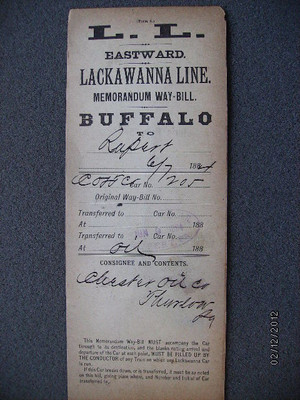 L. L.
EASTWARD.
LACKAWANNA LINE.
MEMORANDUM WAY-BILL.
BUFFALO
TO
Rupert
6/7 188
Car No. 205
Original Way-Bill No.
Transferred to Car No.
At 188
Transferred to Car No.
At Oil 188
CONSIGNEE AND CONTENTS.
Chester Oil Co
Thurlow
Pa
This Memorandum Way-Bill MUST accompany the Car
through to its destination, and the blanks noting arrival and
departure of the Car at each point, MUST BE FILLED UP BY
THE CONDUCTOR of any Train on which any Lackawanna Car
is run.
If this Car breaks down, or is transferred, it must be so noted
on this bill, giving place where, and Number and Initial of Car
transferred to.
02/12/2012